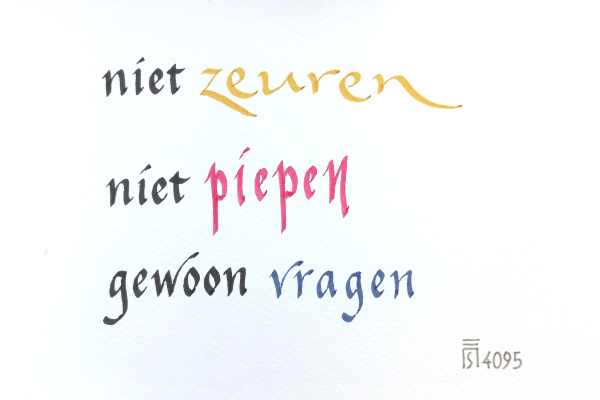 niet zeuren
niet piepen
gewoon vragen
4095